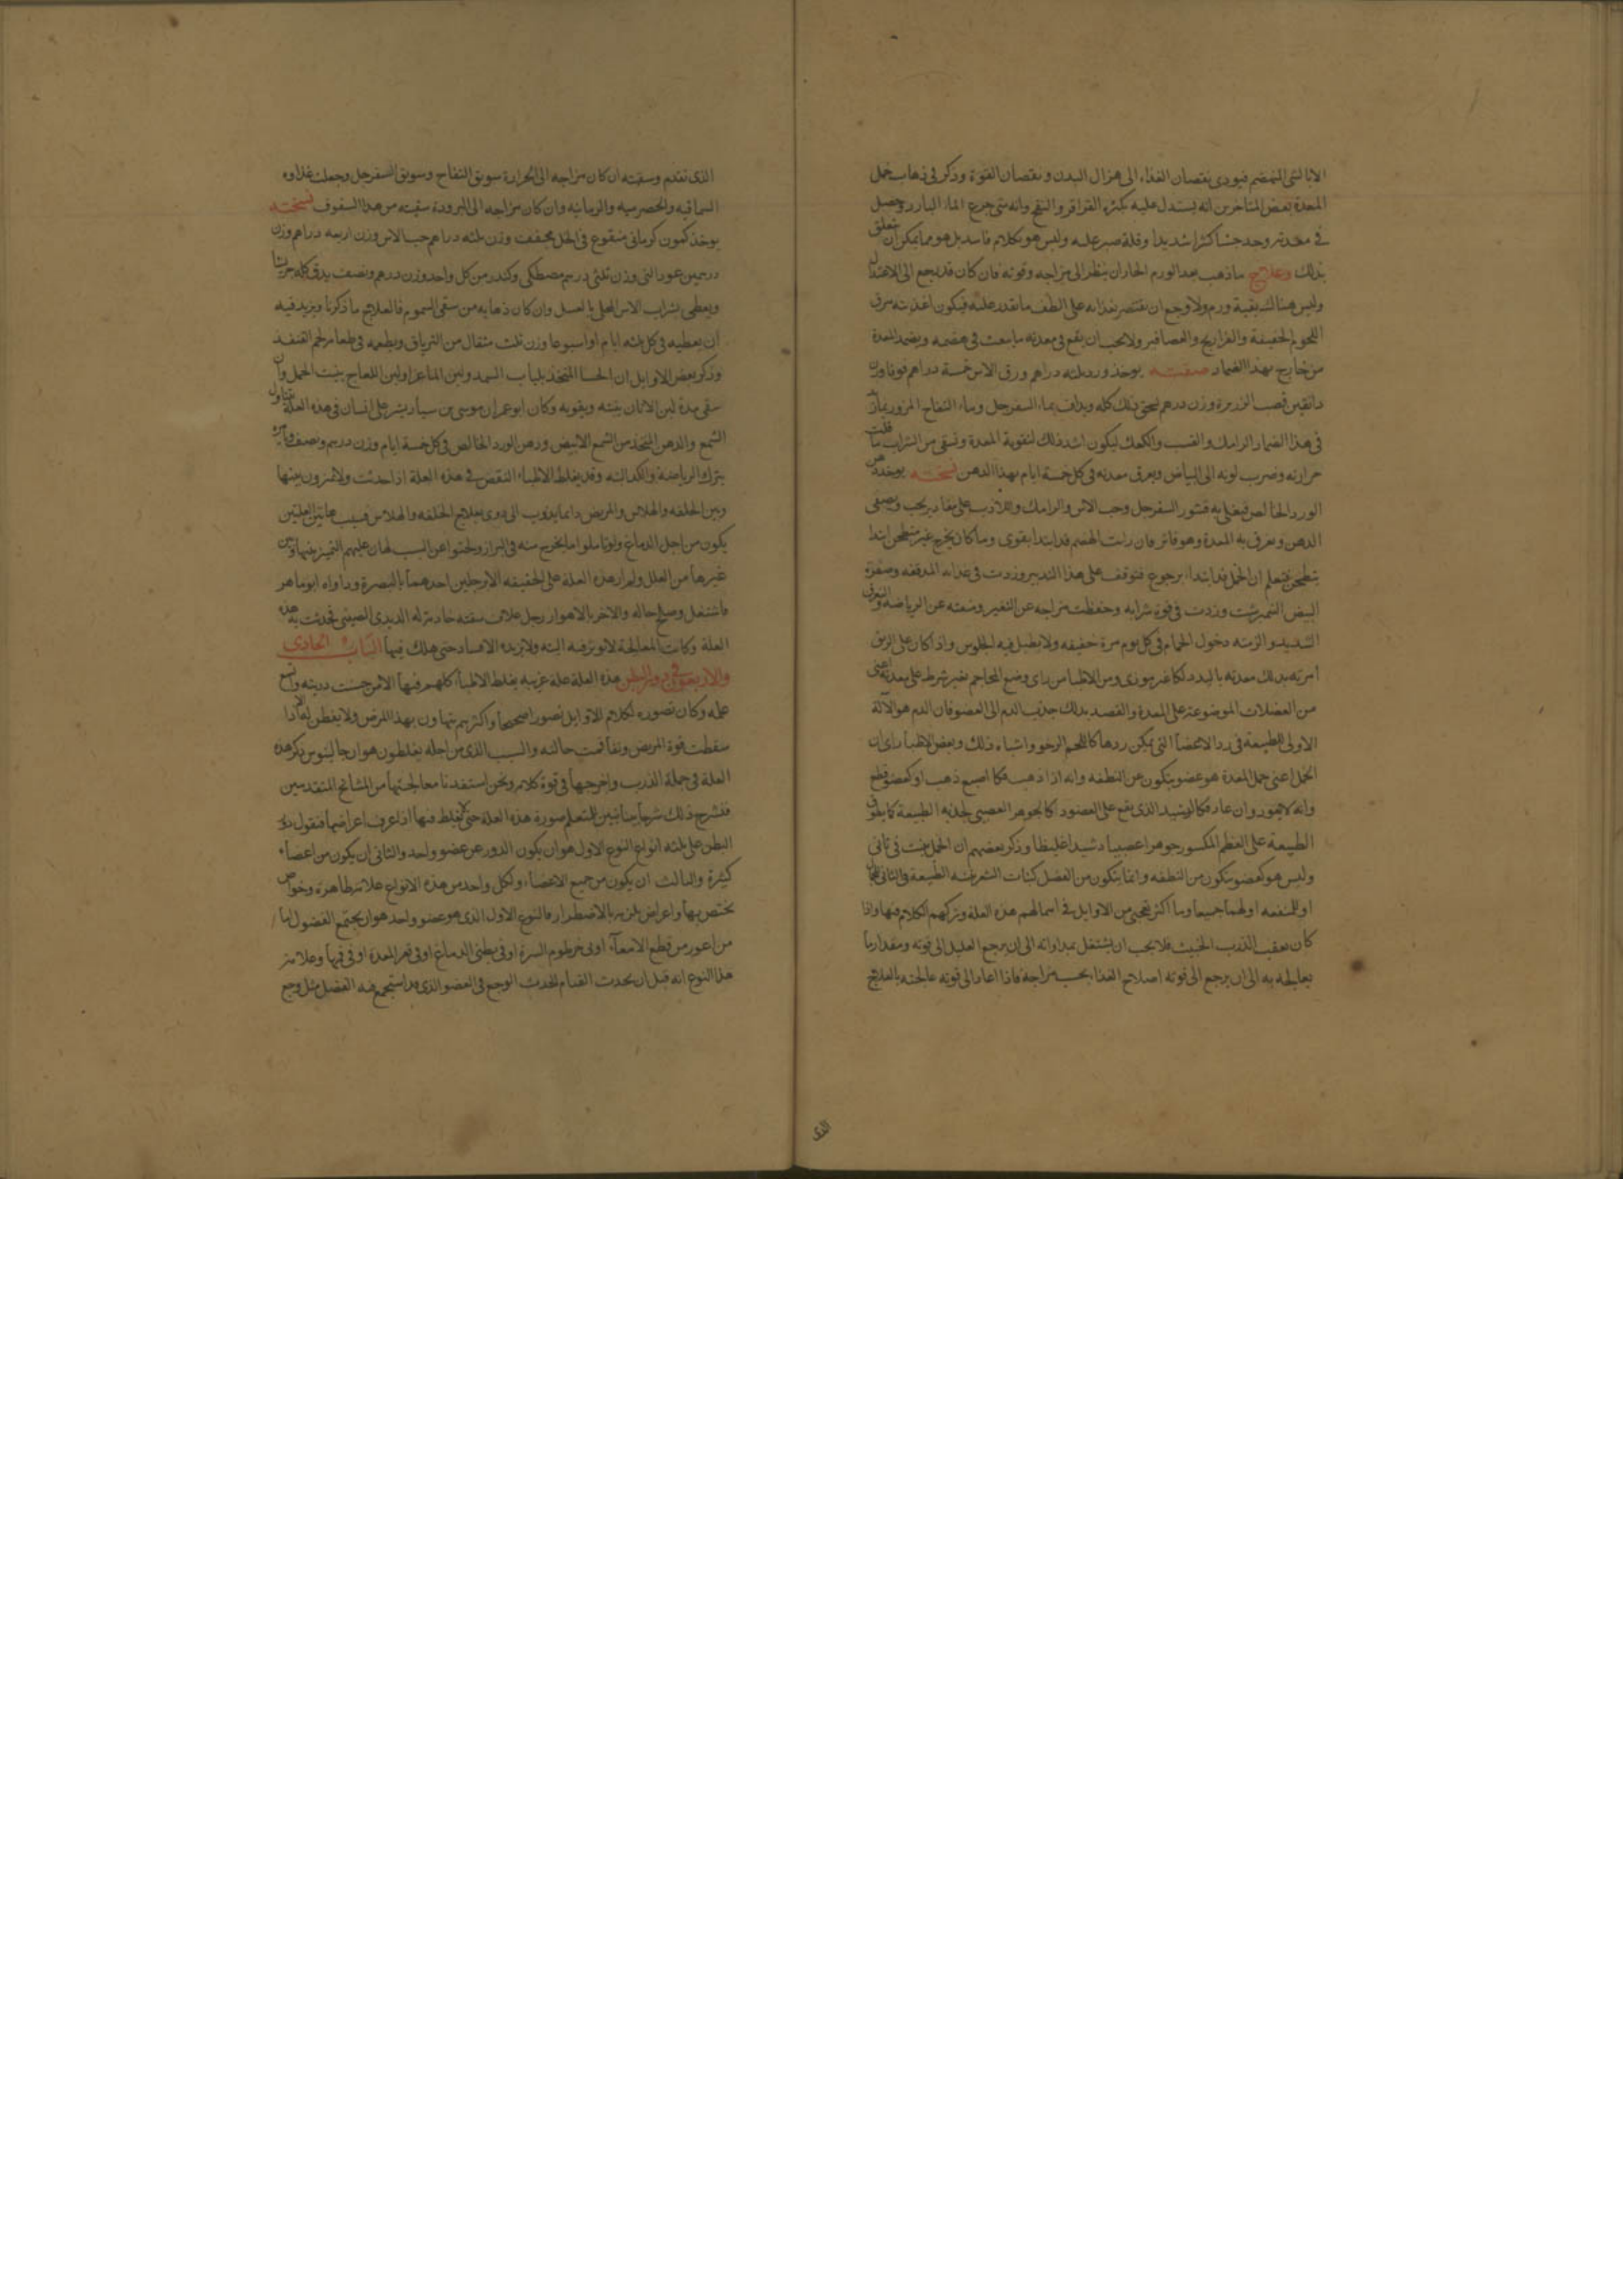 الا بالشى المنهضم فيودى نقصان الغذاء الى هزال البدن ونقصان القوة وذكر فى ذهاب خمل
المعدة بعض المتاخرين انه يستدل عليه بكثرة القراقر والنفخ وانه متى جرع الماء البارد وحصل
فى معدته وجد جشا كثيرا شديدا وقلة صبر عليه وليس هو بكلام فاسد بل هو مما يمكن ان يتعلق
بذلك وعلاج ما ذهب بعد الورم الحار ان ينظر الى مزاجه وقوته فان كان قد رجع الى الاعتدال
وليس هناك بقية ورم ولا وجع ان يقتصر بغذائه على الطف ما يقدر عليه فيكون اغذيته مرق
اللحوم الخفيفة والفراريج والعصافير ولا يجب ان يقع فى معدته ما يلبث فى هضمه ويضمد المعدة
من خارج بهذا الضماد صفته يوخذ ورد ثلثه دراهم ورق الاس خمسة دراهم فوفل وزن
دانقين قصب الذريرة وزن درهم يسحق ذلك كله ويداف بماء السفرجل وماء التفاح المز وربما زيد
فى هذا الضماد الرامك والقسب والكعك ليكون اشد ذلك لتقوية المعدة وتسقى من الشراب ما قلت
حرارته وضرب لونه الى البياض ويعرق معدته فى كل خمسة ايام بهذا الدهن نسخته يوخذ دهن
الورد الخالص فيغلى به قشور السفرجل وحب الاس والرامك واللاذن على مقادير يجب ويصفى
الدهن ويعرق به المعدة وهو فاتر فان رايت الهضم قد ابتدا يقوى وما كان يخرج غير منطحن ابتدا
ينطحن فتعلم ان الخمل قد ابتدا يرجع فتوقف على هذا التدبير وزدت فى غذائه المدققه وصفرة
البيض النيمرشت وزدت فى قوة شرابه وحفظت مزاجه عن التغير ومنعته عن الرياضه والتعرق
الشديد والزمته دخول الحمام فى كل يوم مرة خفيفه ولا يطيل فيه الجلوس واذا كان على الريق
امرته بدلك معدته باليد دلكا غير موذى ومن الاطبا من راى وضع المحاجم بغير شرط على معدته اعنى
من العضلات الموضوعة على المعدة والقصد بذلك جذب الدم الى العضو فان الدم هو الآلة
الاولى للطبيعة فى رد الاعضا التى يمكن ردها كاللحم الرخو واشباه ذلك وبعض الاطبا راى ان
الخمل اعنى خمل المعدة هو عضو يتكون عن النطفه وانه اذا ذهب فكاصبع ذهب او كعضو قطع
وانه لا يعود وان عاد فكالوشيد الذى يقع على العضو او كالجوهر العصبى تحدثه الطبيعة كما يقوى
الطبيعة على العظم المكسور جوهرا عصبيا دشبدا غليظا وذكر بعضهم ان الخمل ينبت فى ثانى
وليس هو كعضو يتكون من النطفه وانما يتكون من الفضل كنبات الشعر تنبته الطبيعة فى الثانى للجمال
او للمنفعه او لهما جميعا وما اكثر تعجبى من الاوايل فى اهمالهم هذه العلة وتركهم الكلام فيها واذا
كان بعقب الذرب الخبيث فلا يجب ان يشتغل بمداواته الى ان يرجع العليل الى قوته ومقدار ما
يعالجه به الى ان يرجع الى قوته اصلاح الغذاء بحسب مزاجه فاذا عاد الى قوته عالجته بالعلاج
الذى
الذى تقدم وسقيته ان كان مزاجه الى الحرارة سويق التفاح وسويق السفرجل وجعلت غذاوه
السماقيه والحصرميه والرمانيه وان كان مزاجه الى البرودة سقيته من هذا السفوف نسخته
يوخذ كمون كرمانى منقوع فى الخل مجفف وزن ثلثه دراهم حب الاس وزن اربعه دراهم وزن
درهمين عود النى وزن ثلثى درهم مصطكى وكندر من كل واحد وزن درهم ونصف يدق كله جريشا
ويعطى بشراب الاس المحلى بالعسل وان كان ذهابه من سقى السموم فالعلاج ما ذكرنا ويزيد فيه
ان يعطيه فى كل ثلثه ايام او اسبوعا وزن ثلث مثقال من الترياق ويطعمه فى طعامه لحم القنفذ
وذكر بعض الاوايل ان الحسا المتخذ بلباب السميد ولبن الماعز او لبن اللعاج ينبت الخمل وان
سقى مدة لبن الاتان ينبته ويقويه وكان ابو عمران موسى بن سيار يشير على انسان فى هذه العلة بتناول
الشمع والدهن المتخذ من الشمع الابيض ودهن الورد الخالص فى كل خمسة ايام وزن درهم ونصف وامره
بترك الرياضة والكد البته وقد يغلط الاطباء النقص فى هذه العلة اذا حدثت ولا يميزون بينها
وبين الخلفه والهلاس والمريض دائما يذوب الى ذوى بعلاج الخلفه والهلاس فسبب هاتين العلتين
يكون من اجل الدماغ ولو تاملوا ما يخرج منه فى البراز وبحثوا عن السبب لهان عليهم التميز بينهما وبين
غيرها من العلل ولم ار هذه العلة على الحقيقه الا برجلين احدهما بالبصرة وداواه ابو ماهر
فاشتغل وصلح حاله والاخر بالاهواز رجل علاف سقته خادمة له الديدى الصينى فحدثت به هذه
العلة وكانت المعالجة لا توثر فيه البته ولا تزيده الا فسادا حتى هلك فيها الباب الحادى
والاربعون فى دور البطن هذه العلة علة غريبه يغلط الاطباء كلهم فيها الا من حسنت دربته واتسع
علمه وكان تصوره لكلام الاوايل تصورا صحيحا واكثرهم يتهاون بهذا المرض ولا يفطن له الا اذا
سقطت قوة المريض وتفاقمت حالته والسبب الذى من اجله يغلطون هو ان جالينوس ذكر هذه
العلة فى جملة الذرب واخرجها فى قوة كلامه ونحن استفدنا معالجتها من المشائخ المتقدمين
فنشرح ذلك شرحا بينا يتبين للمتعلم صورة هذه العلة حتى لا يغلط فيها اذا عرف اعراضها فنقول دور
البطن على ثلثه انواع النوع الاول هو ان يكون الدور عن عضو واحد والثانى ان يكون من اعضاء
كثيرة والثالث ان يكون من جميع الاعضاء ولكل واحد من هذه الانواع علامة ظاهرة وخواص
يختص بها واعراض يلزمه بالاضطرار فالنوع الاول الذى هو عضو واحد هو ان يجتمع الفضول اما
من اعور من قطع الامعآء او فى خرطوم السرة او فى بطنى الدماغ او فى قعر المعدة او فى فمها وعلامة
هذا النوع انه قبل ان يحدث القيام يحدث الوجع فى العضو الذى قد استجمع فيه الفضل مثل وجع